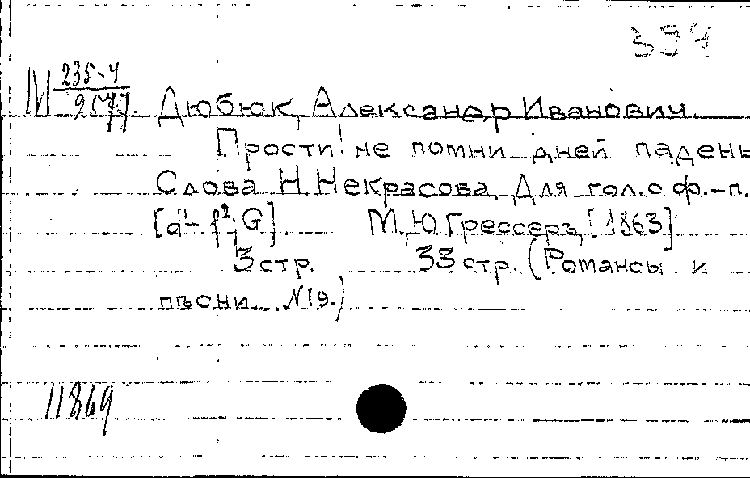 394
М 235-4
Дюбюк, Александр Иванович.
Прости! не помни дней паденья
Слова Н. Некрасова. Для гол. с ф.-п.
[d¹-f²; G]. М., Ю. Грессеръ, [1863]
3 стр. 33 стр. (Романсы и
пѣсни. №19.)
11869